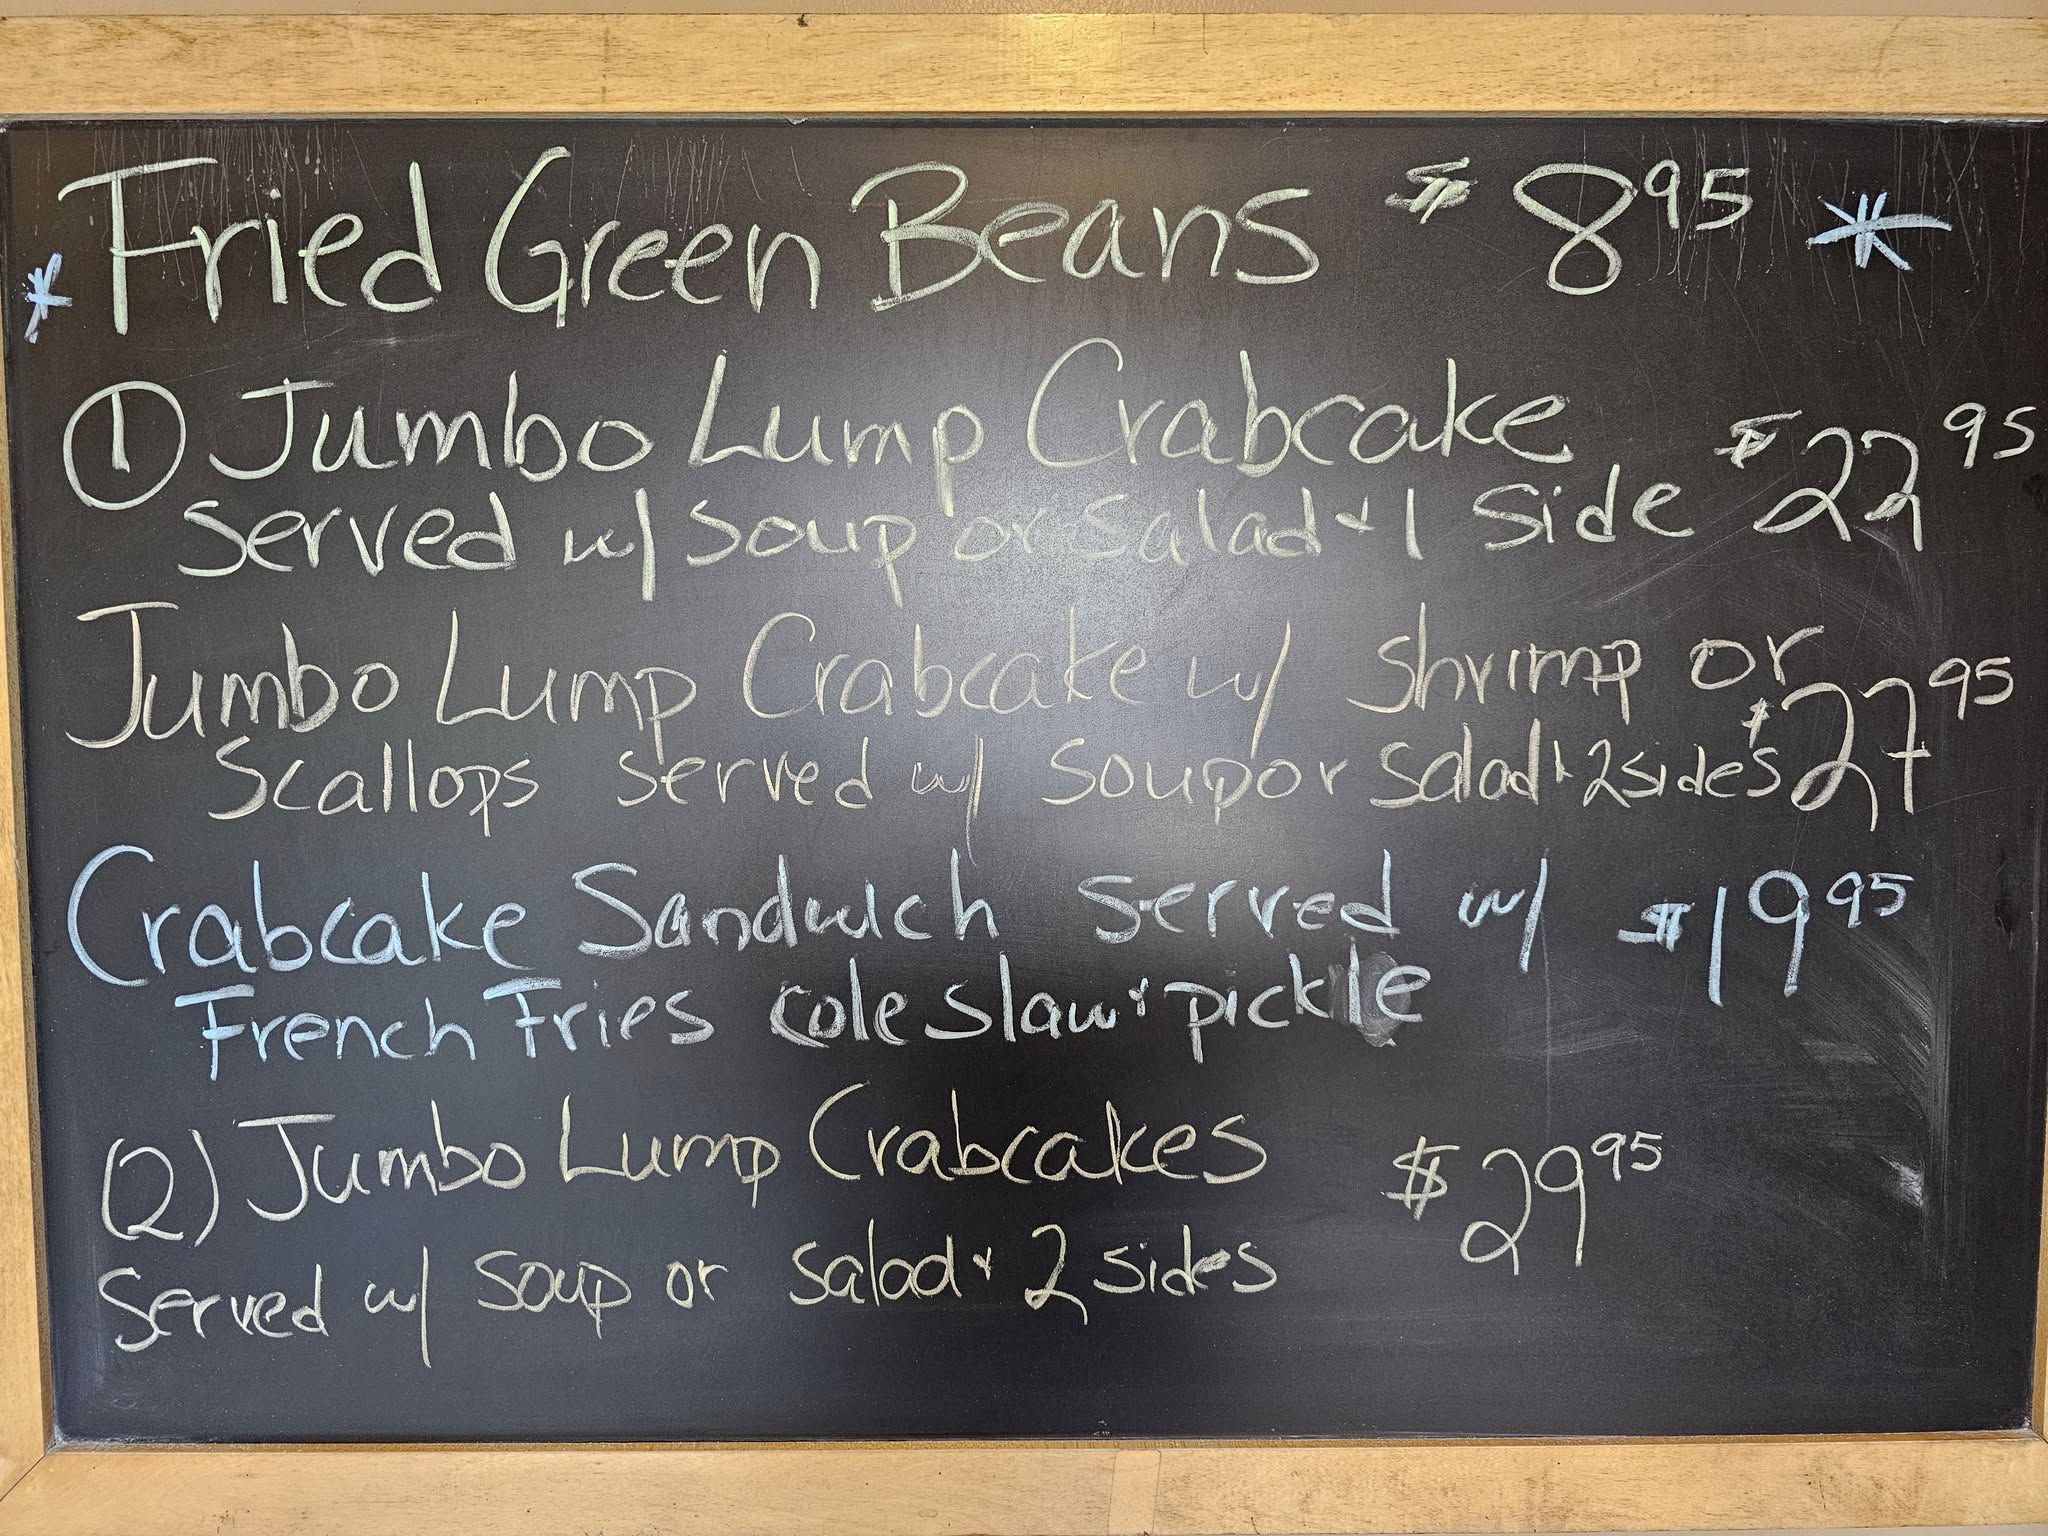 * Fried Green Beans $8.95 *
① Jumbo Lump Crabcake $22.95
Served w/ Soup or Salad & 1 Side
Jumbo Lump Crabcake w/ Shrimp or
Scallops Served w/ Soup or Salad & 2 sides $27.95
Crabcake Sandwich Served w/ $19.95
French Fries cole slaw & pickle
(2) Jumbo Lump Crabcakes $29.95
Served w/ Soup or Salad & 2 sides